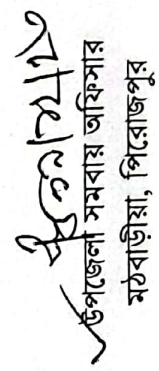 উপজেলা সমবায় অফিসার
মঠবাড়ীয়া, পিরোজপুর